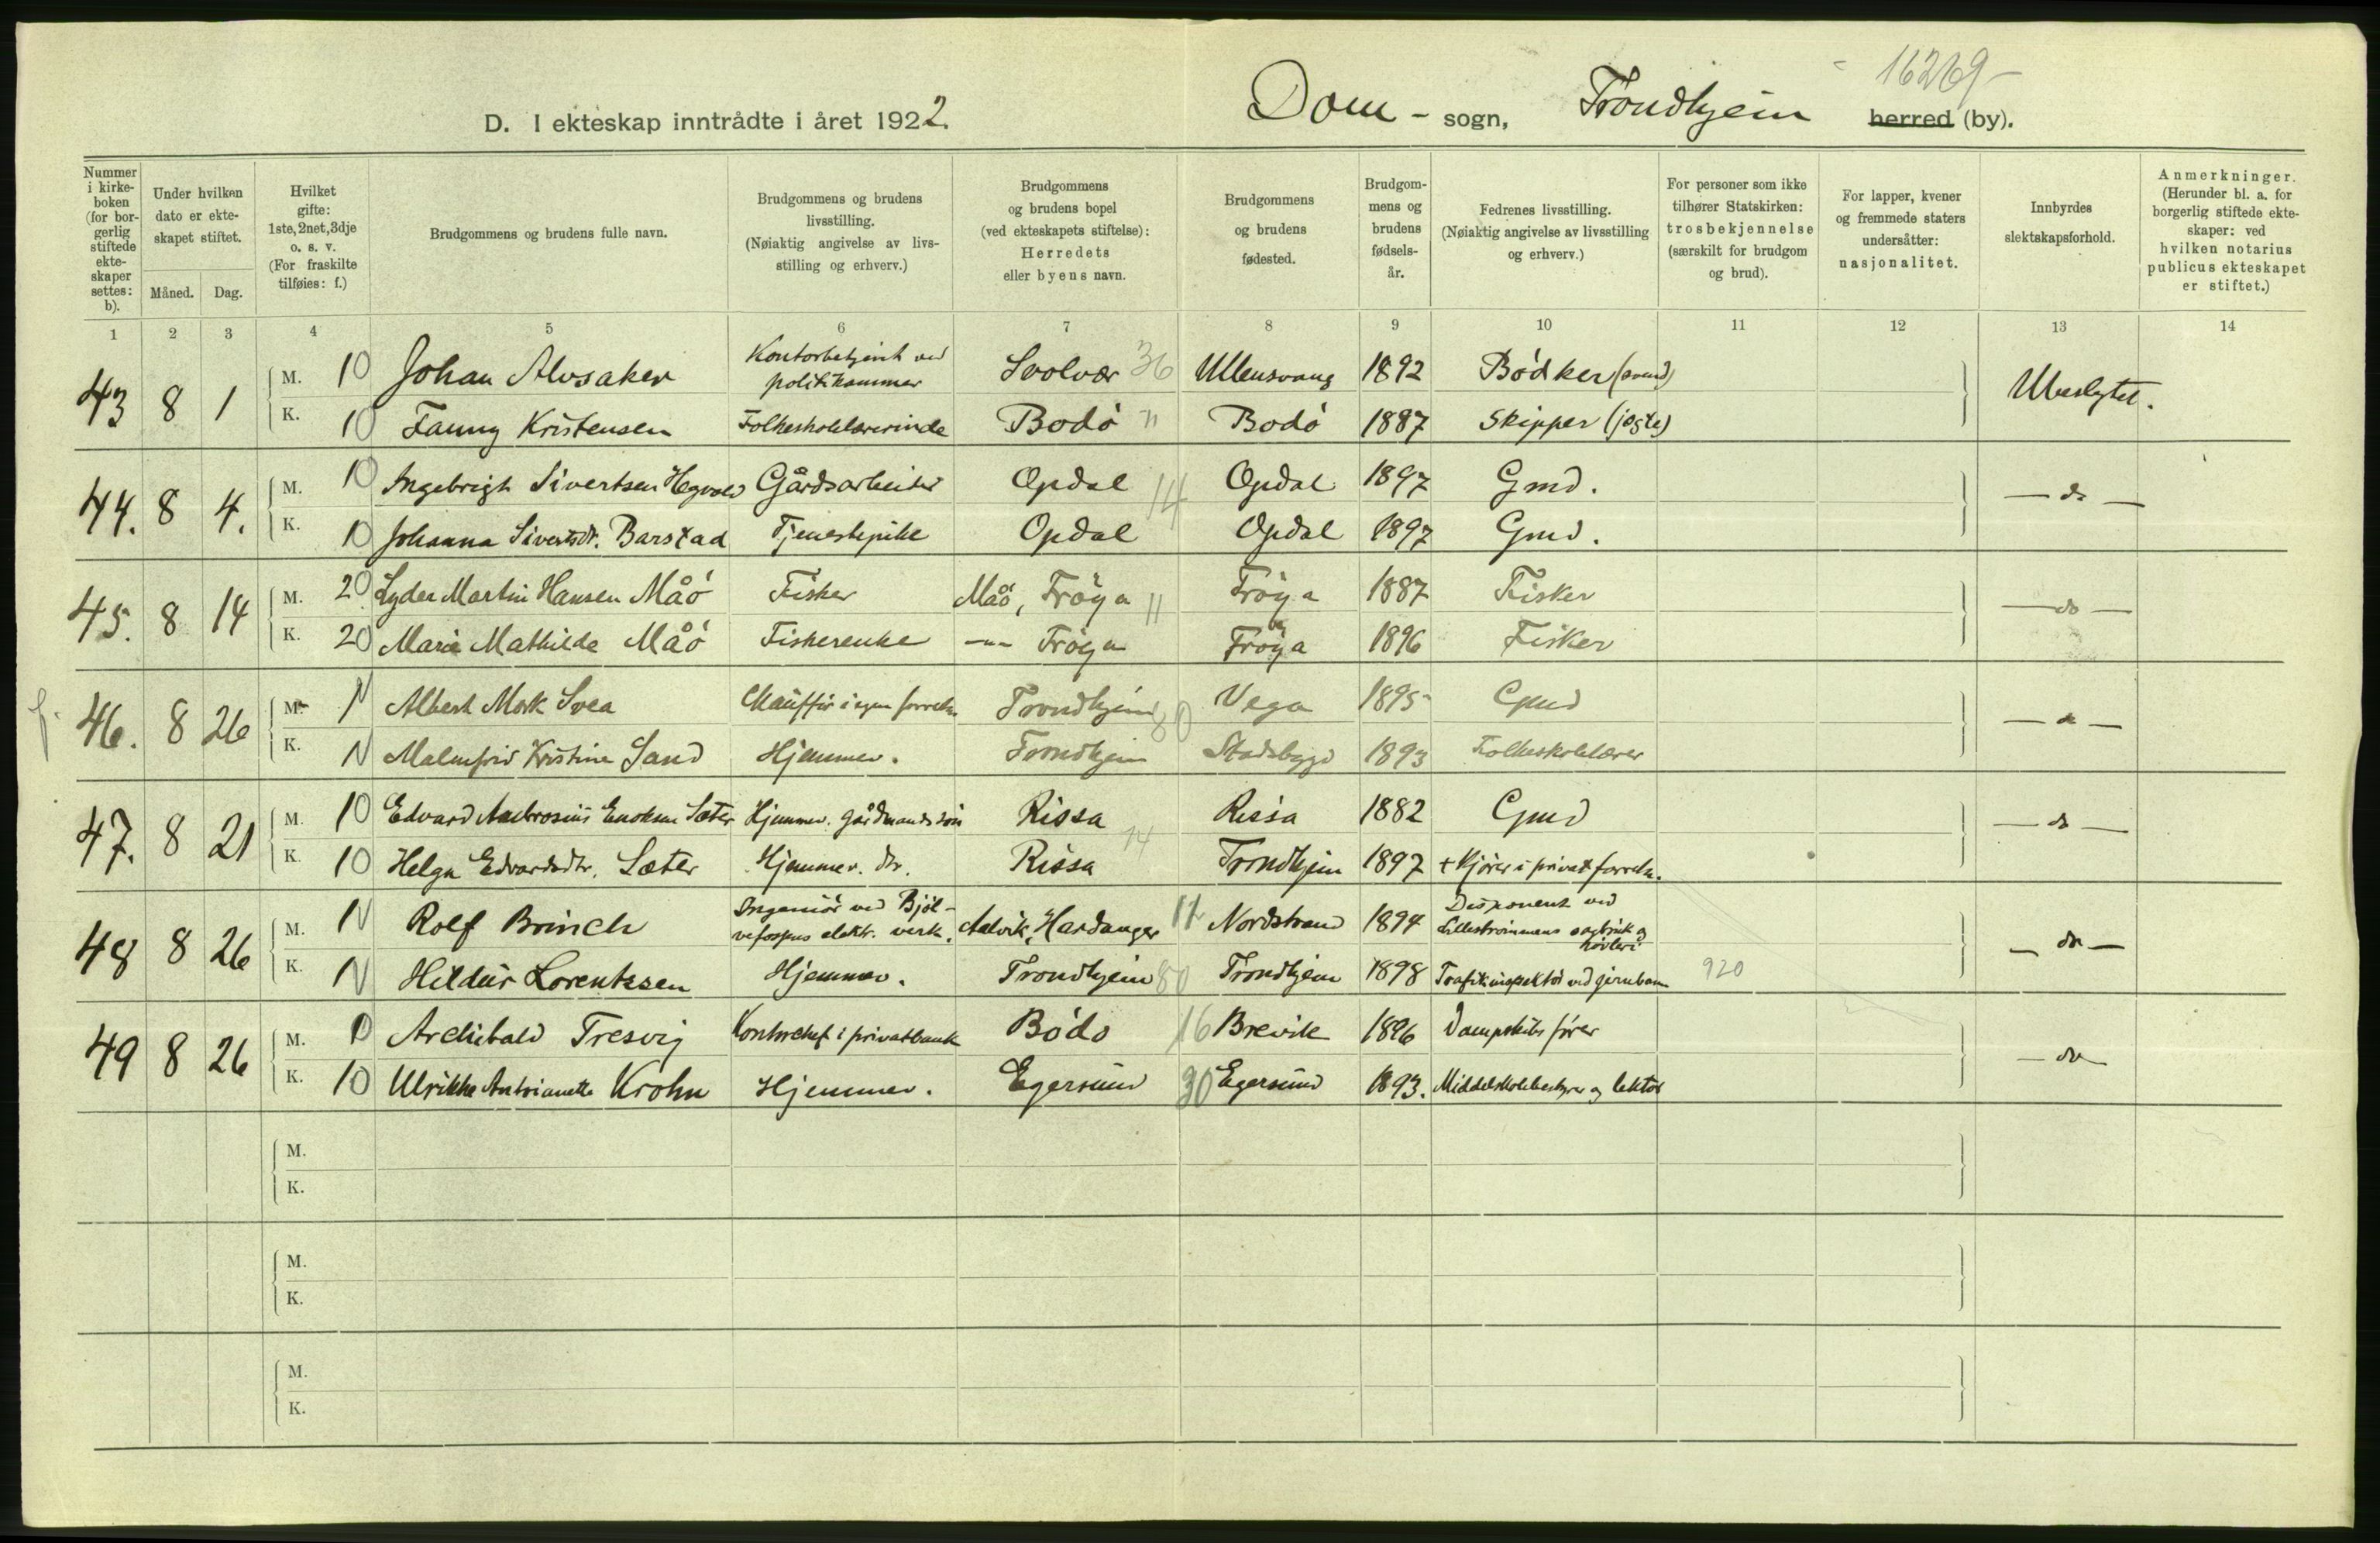 16269
D. I ekteskap inntrådte i året 1922. Dom - sogn, Trondhjem herred (by).
Nummer i kirke-boken (for bor-gerlig stiftede ekte-skaper settes: b).
Under hvilken dato er ekte-skapet stiftet.
Måned. Dag.
Hvilket gifte: 1ste, 2net, 3dje o. s. v. (For fraskilte tilføies: f.)
Brudgommens og brudens fulle navn.
Brudgommens og brudens livsstilling. (Nøiaktig angivelse av livs-stilling og erhverv.)
Brudgommens og brudens bopel (ved ekteskapets stiftelse): Herredets eller byens navn.
Brudgommens og brudens fødested.
Brudgom-mens og brudens fødsels-år.
Fedrenes livsstilling. (Nøiaktig angivelse av livsstilling og erhverv.)
For personer som ikke tilhører Statskirken: trosbekjennelse (særskilt for brudgom og brud).
For lapper, kvener og fremmede staters undersåtter: nasjonalitet.
Innbyrdes slektskapsforhold.
Anmerkninger. (Herunder bl. a. for borgerlig stiftede ekte-skaper: ved hvilken notarius publicus ekteskapet er stiftet.)
1 2 3 4 5 6 7 8 9 10 11 12 13 14
43 8 1 M. 10 Johan Alvsaker Kontorbetjent ved politikammer Svolvær 36 Ullensvang 1892 Bödker (svend) Ubeslegtet.
K. 10 Fanny Kristensen Folkeskolelærerinde Bodö " Bodö 1887 Skipper (jegte)
44. 8 4. M. 10 Ingebrigt Sivertsen Hegvold Gårdsarbeider Opdal 14 Opdal 1897 Gmd. — do —
K. 10 Johanna Sivertsdt. Barstad Tjenestepike Opdal Opdal 1897 Gmd.
45. 8 14 M. 20 Lyder Martin Hansen Måö Fisker Måö, Fröya 11 Fröya 1887 Fisker — do —
K. 20 Marie Mathilde Måö Fiskerenke -"- Fröya Fröya 1896 Fisker
46. 8 26 M. N Albert Mork Svea Chauffør i egen forretn. Trondhjem 80 Vega 1895 Gmd — do —
K. N Malmfrid Kristine Sand Hjemmev. Trondhjem Stadsbygd 1893 Folkeskolelærer
47. 8 21 M. 10 Edvard Ambrosius Enoksen Sæter Hjemmev. gårdmandssön Rissa 14 Rissa 1882 Gmd — do —
K. 10 Helga Edvardsdtr. Sæter Hjemmev. dtr. Rissa Trondhjem 1897 + Kjører i privat forretn.
48 8 26 M. N Rolf Brinch Ingeniör ved Bjöl-vefossens elektr. verk. Aalvik, Hardanger 12 Nordstrand 1894 Disponent ved Lilleströmmens sagbruk og høvleri — do —
K. N Hildur Lorentzsen Hjemmev. Trondhjem 80 Trondhjem 1898 Trafikinspektör ved jernban 920
49 8 26 M. 10 Archibald Tresvig Kontorchef i privatbank Bodö 16 Brevik 1896 Dampskibsfører — do —
K. 10 Ulrikke Antoinette Krohn Hjemmev. Egersund 30 Egersund 1893. Middelskolebestyrer og lektor
M.
K.
M.
K.
M.
K.